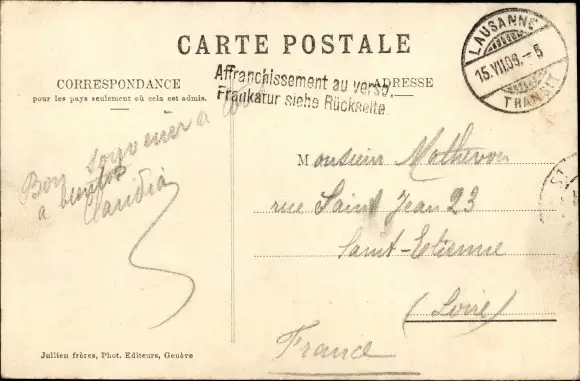 CARTE POSTALE
CORRESPONDANCE
pour les pays seulement où cela est admis.
ADRESSE
Affranchissement au verso.
Frankatur siehe Rückseite.
LAUSANNE
15.VII.09.-5
TRANSIT
Bon souvenir à
à bientôt
Claudia
Monsieur Mathevon
rue Saint Jean 23
Saint-Etienne
(Loire)
France
Jullien frères, Phot. Editeurs, Genève